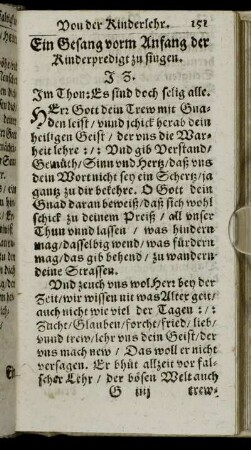 Von der Kinderlehr. 151
Ein Gesang vorm Anfang der
Kinderpredigt zu singen.
J Z.
Jm Thon: Es sind doch selig alle.
HErr Gott dein Trew mit Gna-
den leist / vnnd schick herab dein
heiligen Geist / der vns die War-
heit lehre :/: Vnd gib Verstand /
Gemüth / Sinn vnd Hertz / daß vns
dein Wort nicht sey ein Schertz / ja
gantz zu dir bekehre. O Gott dein
Gnad daran beweiß / daß sich wohl
schick zu deinem Preiß / all vnser
Thun vnnd lassen / was hindern
mag / dasselbig wend / was fürdern
mag / das gib behend / zu wandern
deine Strassen.
Vnd zeuch vns wol HErr bey der
Zeit / wir wissen nit was Alter geit /
auch nicht wie viel der Tagen :/:
Zucht / Glauben / forcht / fried / lieb /
vnnd trew / lehr vns dein Geist / der
vns mach new / Das woll er nicht
versagen. Er bhüt allzeit vor fal-
scher Lehr / der bösen Welt auch
G iiij trew-